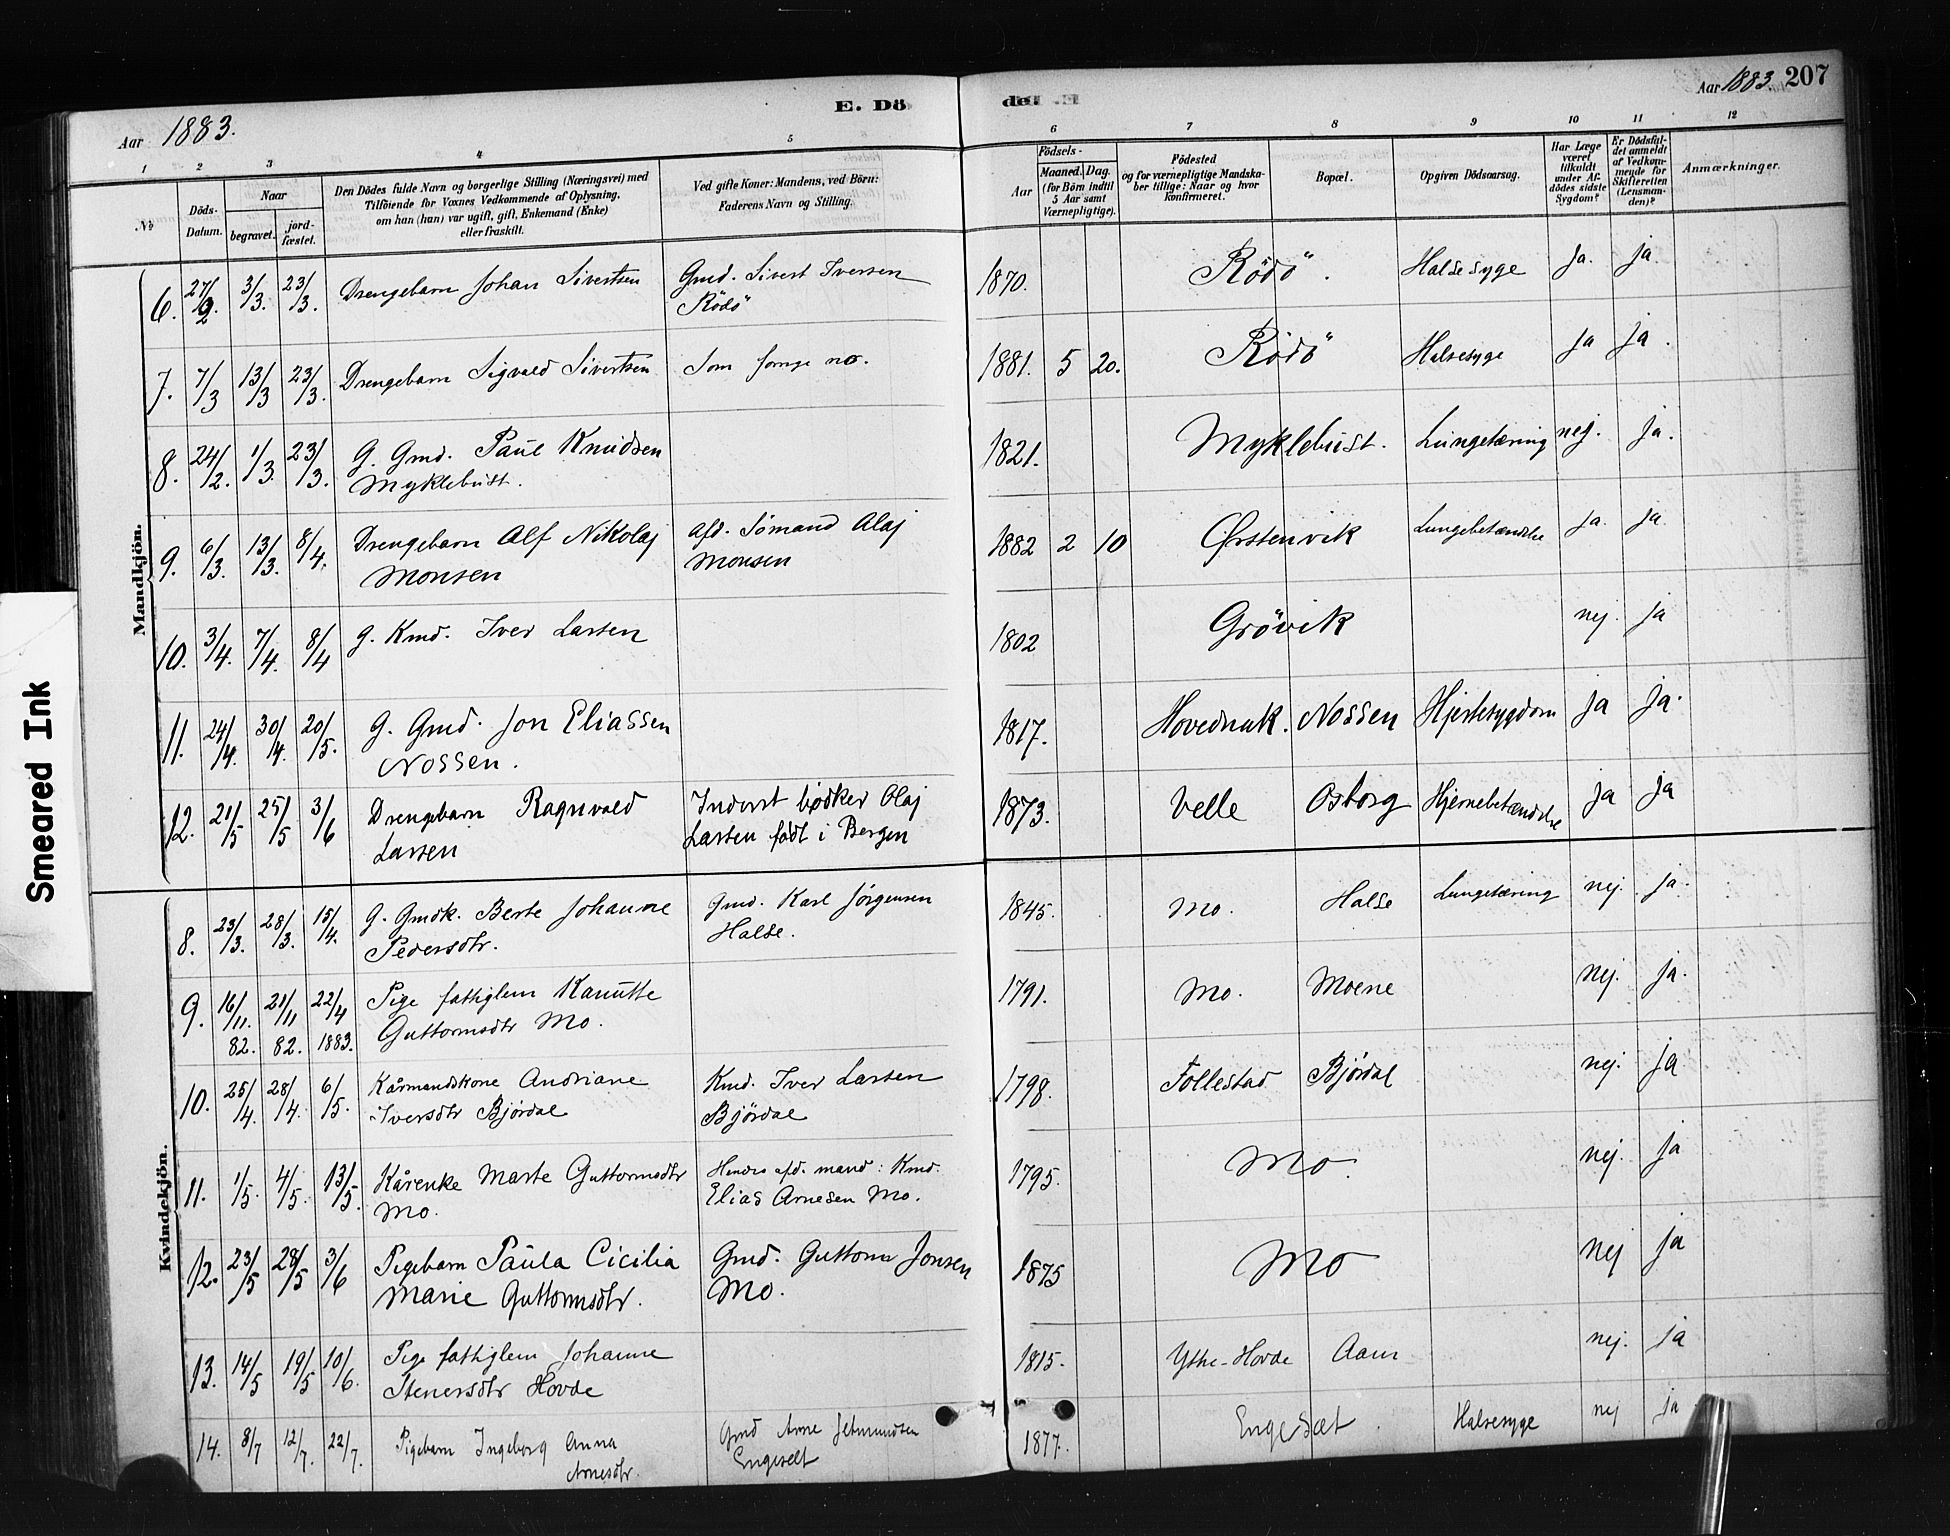 E. Dö
de. E
Aar 1883.
Aar 1883. 207
1 2 3 4 5 6 7 8 9 10 11 12
№
Döds-Datum.
Naar
begravet.
jordfæstet.
Den Dödes fulde Navn og borgerlige Stilling (Næringsvei) med
Tilföiende for Voxnes Vedkommende af Oplysning,
om han (hun) var ugift, gift, Enkemand (Enke)
eller fraskilt.
Ved gifte Koner: Mandens, ved Börn:
Faderens Navn og Stilling.
Födsels-
Aar
Maaned. Dag.
(for Börn indtil
5 Aar samt
Værnepligtige).
Födested
og for værnepligtige Mandskaber tillige: Naar og hvor
Konfirmeret.
Bopæl.
Opgiven Dödsaarsag.
Har Læge
været
tilkaldt
under Afdödes sidste
Sygdom?
Er Dödsfaldet anmeldt
af Vedkommende for
Skifteretten
(Lensmanden)?
Anmærkninger.
Mandkjön.
6. 27/2. 3/3. 23/3. Drengebarn Johan Sivertsen Gmd. Sivert Iversen 1870. Rödö. Halsesyge Ja. ja.
Rödö
7. 7/3 13/3 23/3. Drengebarn Sigvald Sivertsen Som forrige no. 1881. 5 20. Rödö Halsesyge ja ja.
8. 24/2. 1/3. 23/3. G. Gmd. Paul Knudsen 1821. Myklebust. Lungetæring nej. ja.
Myklebust.
9. 6/3. 13/3. 8/4. Drengebarn Alf Nikolaj afd. Sömand Olaj 1882 2 10 Ørstenvik Lungebetændelse ja. ja.
Monsen Monsen
10. 3/4. 7/4. 8/4 g. Kmd. Iver Larsen 1802 Grövik nej. ja
11. 24/4. 30/4. 20/5. G. Gmd. Jon Eliassen 1817. Hovednak. Nossen Hjertesygdom ja ja.
Nossen.
12. 21/5 25/5 3/6 Drengebarn Ragnvald Inderst bødker Olaj 1873. Velle Osborg Hjernebetændelse ja ja
Larsen Larsen født i Bergen
Kvindekjön.
8. 23/3. 28/3. 15/4. G. Gmdk. Berte Johanne Gmd. Karl Jörgensen 1845. Mo. Halse Lungetæring nej. ja.
Pedersdtr. Halse.
9. 16/11. 21/11 22/4 Pige fattiglem Kanutte 1791. Mo. Moene nej. ja.
82. 82. 1883. Guttormsdtr Mo.
10. 25/4. 28/4. 6/5. Kårmandskone Andriane Kmd. Iver Larsen 1798. Follestad Björdal nej. ja
Iversdtr Björdal Björdal
11. 1/5. 4/5. 13/5. Kårenke Marte Guttormsdtr Hendes afd. mand: Kmd. 1795. Mo. nej. ja
Mo. Elias Arnesen Mo.
12. 23/5 28/5 3/6 Pigebarn Paula Cicilia Gmd. Guttorm Jonsen 1875 Mo nej ja
Marie Guttormsdtr. Mo.
13. 14/5 19/5 10/6. Pige fattiglem Johanne 1815. Ytre-Hovde Aam nej. ja
Stenersdtr Hovde
14. 8/7 12/7. 22/7. Pigebarn Ingeborg Anna Gmd Arne Jetmundsen 1877. Engesæt. Halsesyge nej ja
Arnesdtr. Engeselt
Smeared Ink